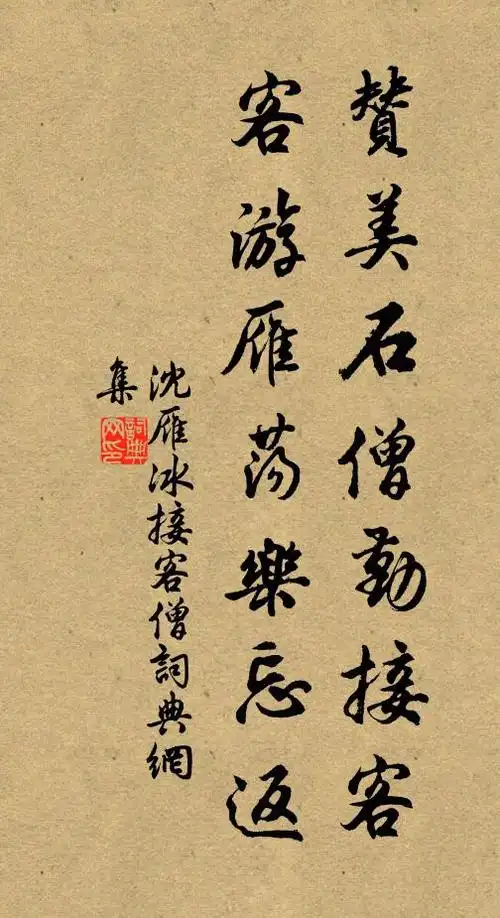 贊美石僧勤接客
客游雁荡樂忘返
沈雁冰接客僧詞典網
集
詞典网印